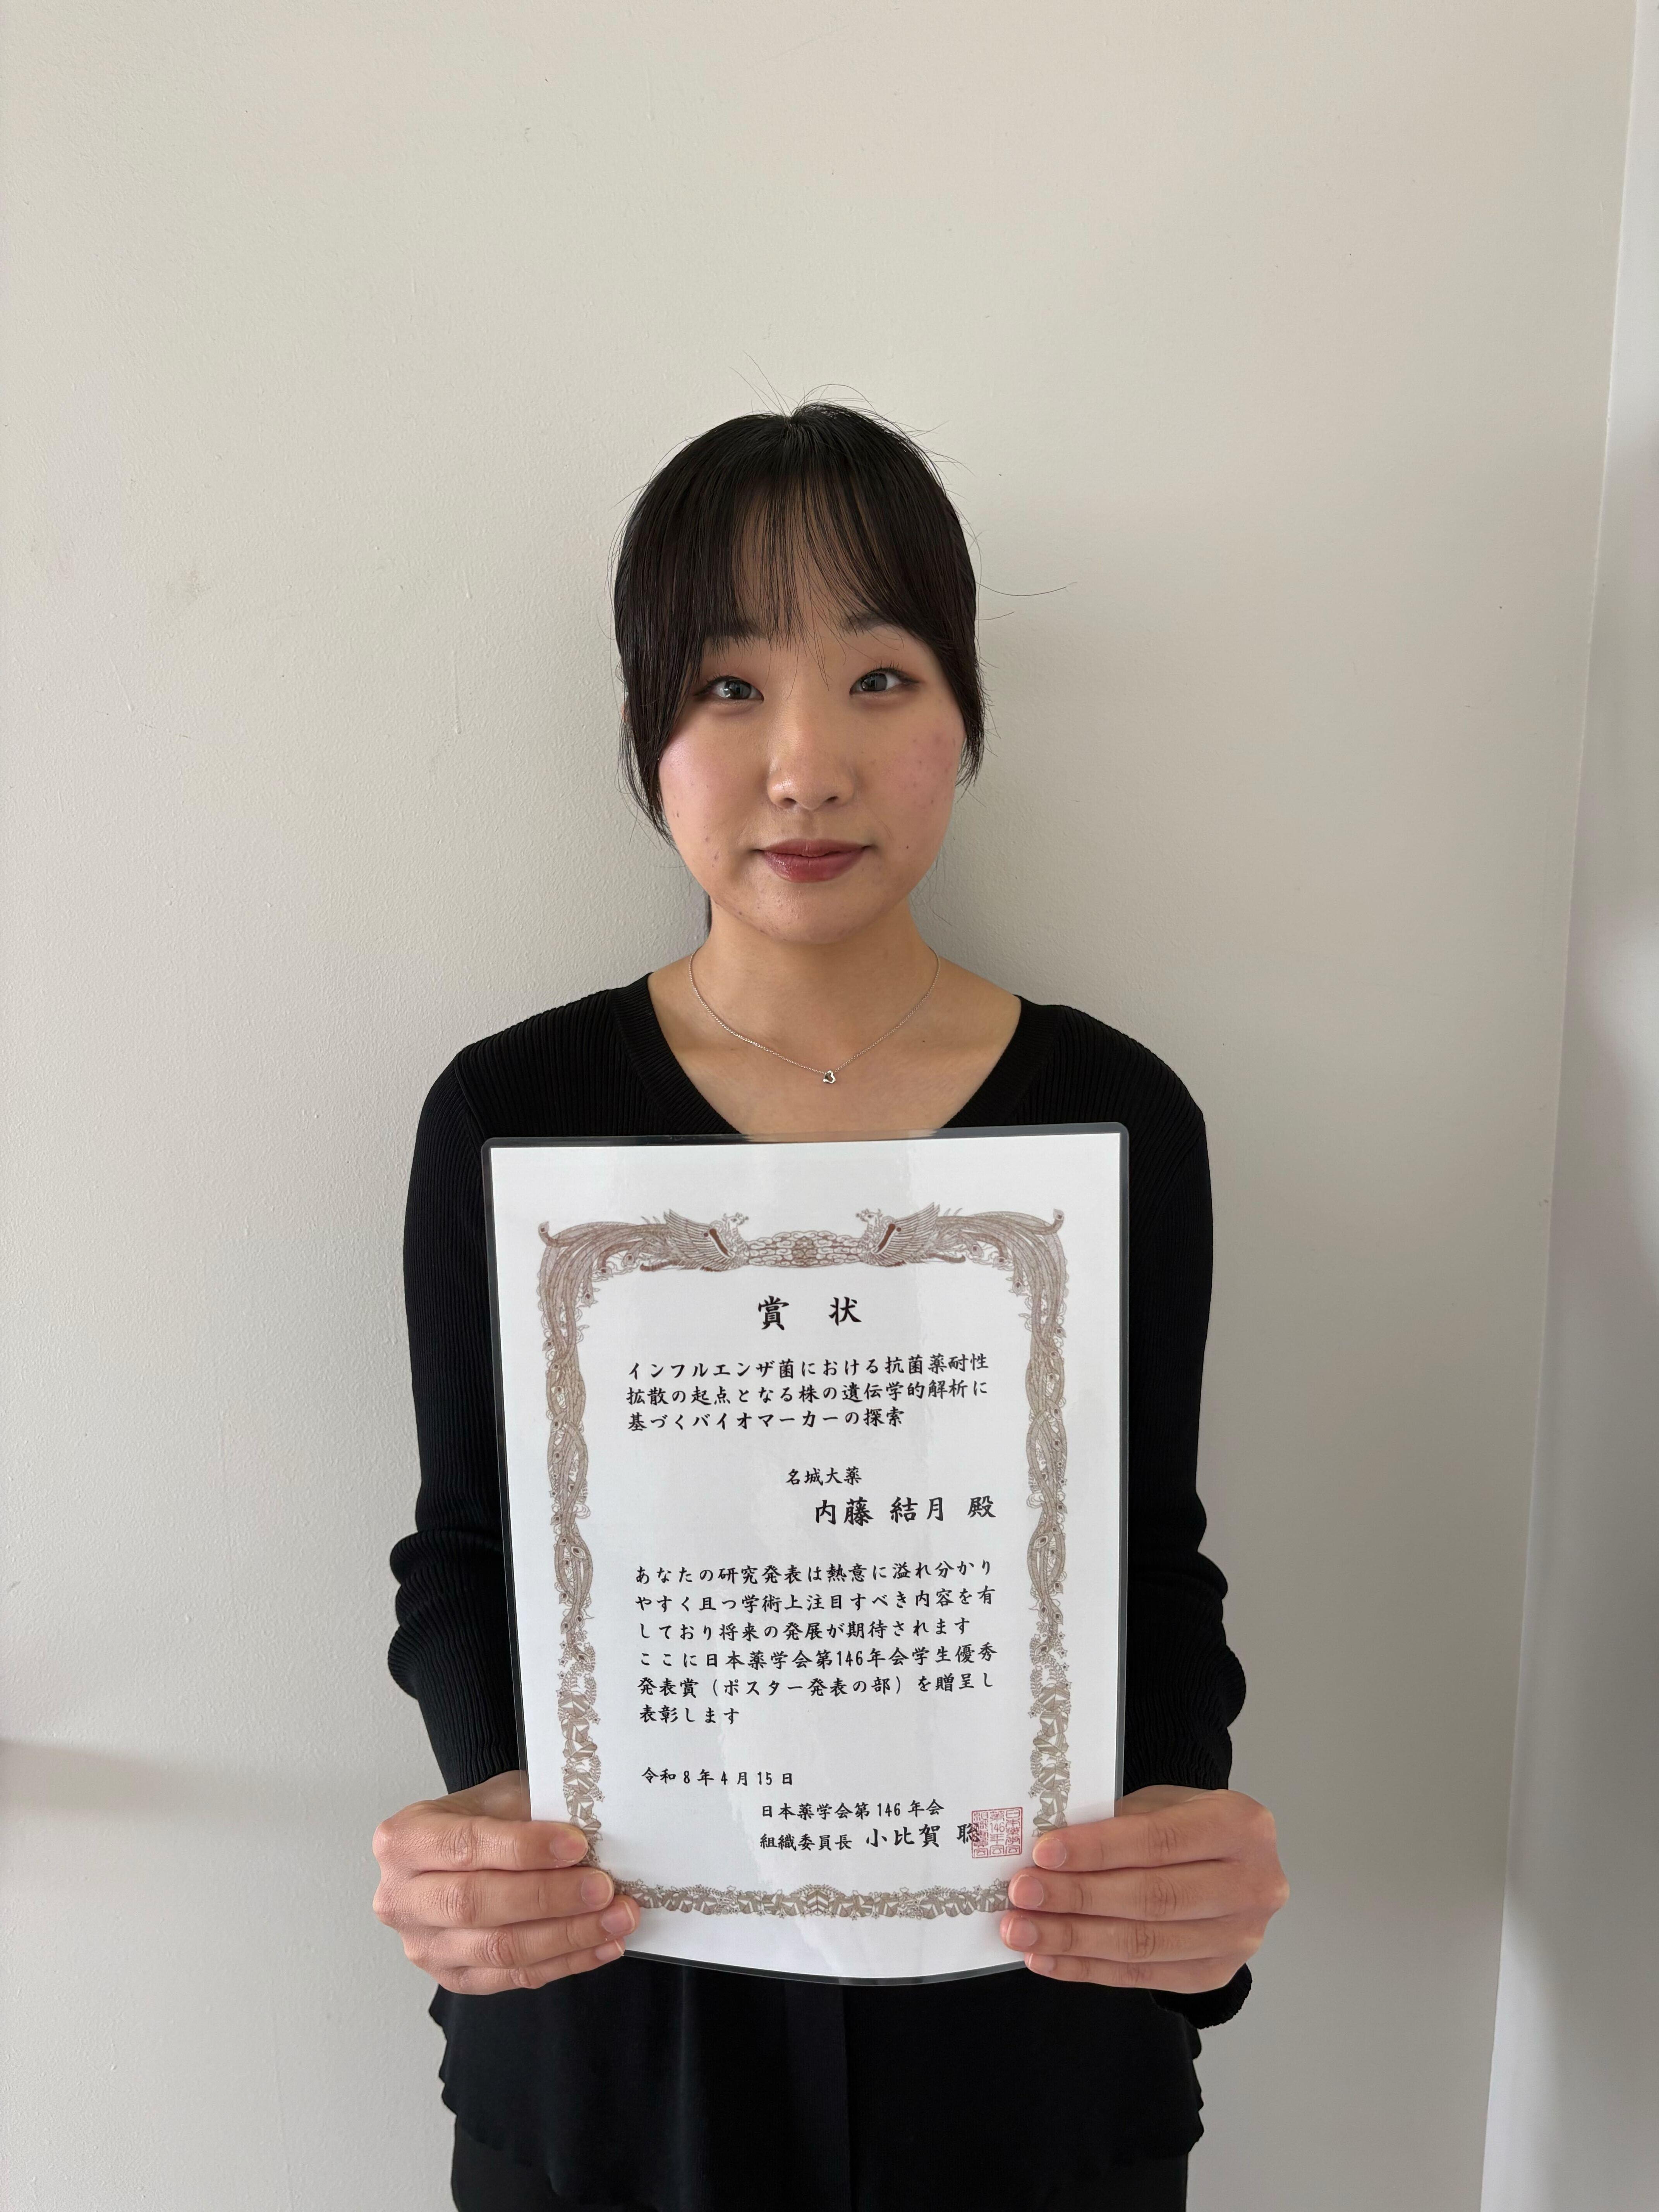 賞 状
インフルエンザ菌における抗菌薬耐性
拡散の起点となる株の遺伝学的解析に
基づくバイオマーカーの探索
名城大薬
内藤 結月 殿
あなたの研究発表は熱意に溢れ分かり
やすく且つ学術上注目すべき内容を有
しており将来の発展が期待されます
ここに日本薬学会第146年会学生優秀
発表賞（ポスター発表の部）を贈呈し
表彰します
令和8年4月15日
日本薬学会第146年会
組織委員長 小比賀 聡